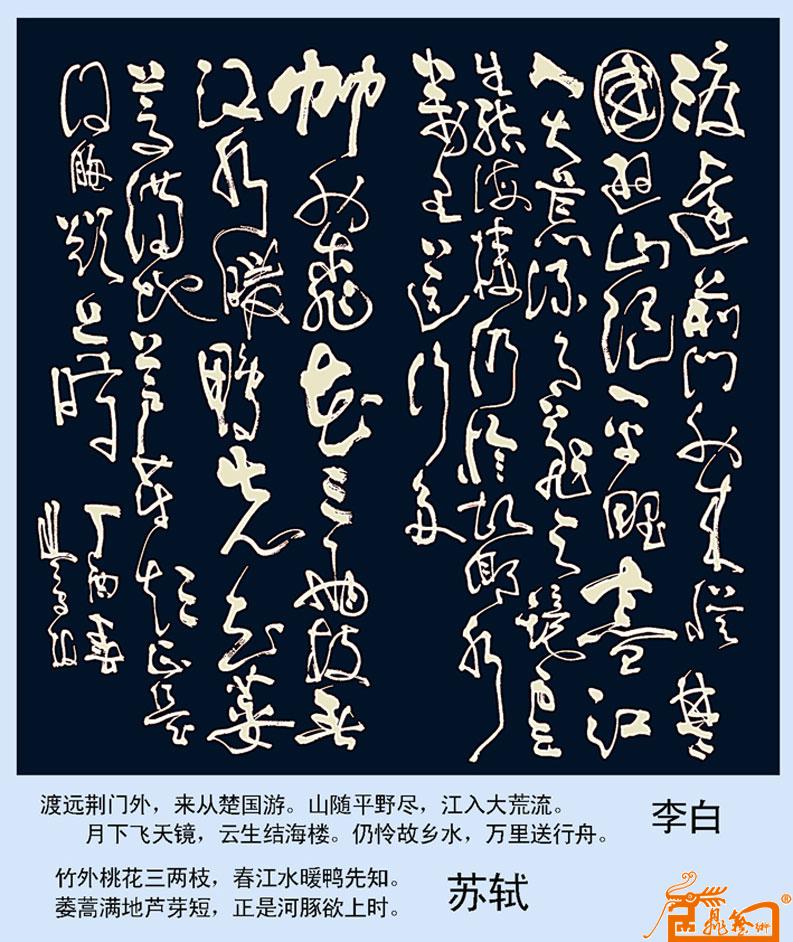 渡遠荆门外来從楚
國遊山随平野盡江
入大荒流月下飛天镜雲
生結海樓仍怜故鄉水
萬里送行舟
竹外桃花三两枝春
江水暖鴨先知蒌
蒿满地芦芽短正是
河豚欲上時
丁酉春
渡远荆门外，来从楚国游。山随平野尽，江入大荒流。
月下飞天镜，云生结海楼。仍怜故乡水，万里送行舟。
李白
竹外桃花三两枝，春江水暖鸭先知。
蒌蒿满地芦芽短，正是河豚欲上时。
苏轼